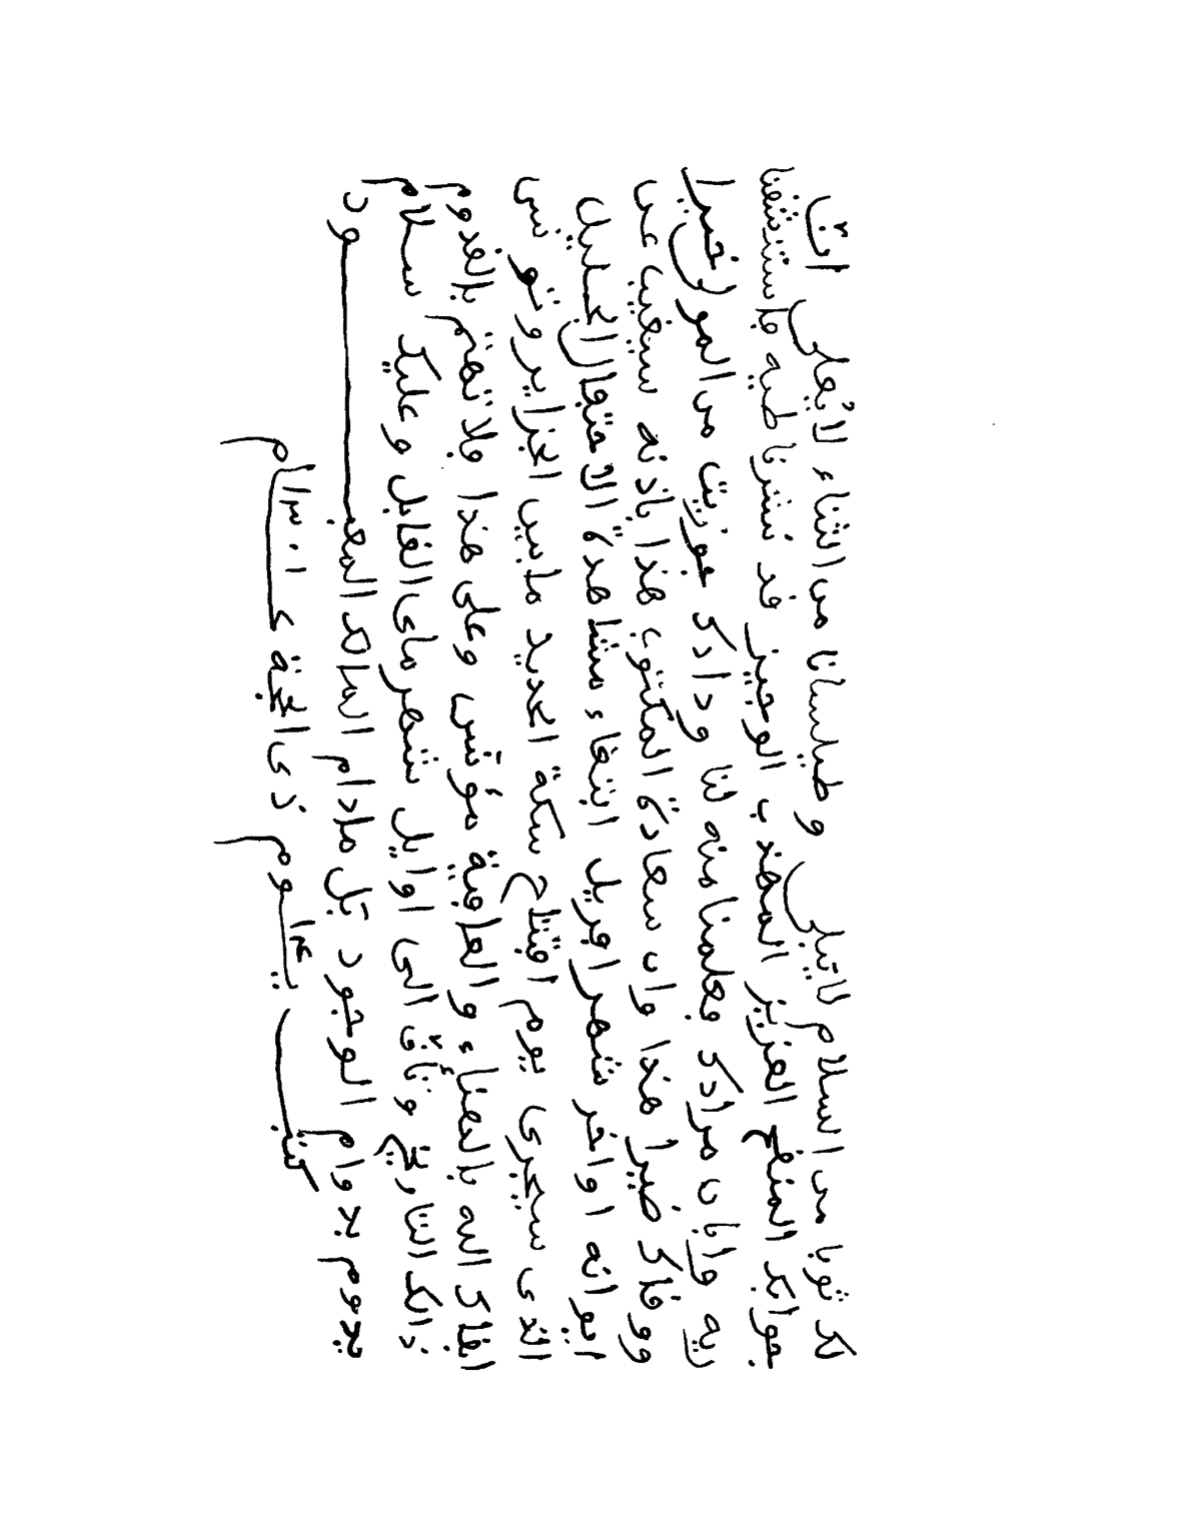 لك ثوبا من السلام لا يبلى وطيلسانا من الثناء لا يُعلى اتى
جوابك المنقح العزيز المهذب الوجيز قد نشرنا طيه فاستنشقنا
ريه وابان مرادك فعلمنا منه لنا ودادك جوزيت من المولى خيرا
ووقاك ضيرا هذا وان سعادة المكتوب هذا باذنه سيغيب عن
ايوانه اواخر شهر افريل ابتغاء مشاهدة الاحتفال الجليل
الذى سيجرى يوم افتتاح سكة الحديد مابين الجزاير وتونس
ابقاك الله بالهناء والعافية مؤنس وعلى هذا فلا تهتم بالقدوم
ذالك التاريخ وتأتى الى اوايل شهر ماى القابل وعليك سلام
يدوم بدوام الوجود بل مادام المالك المعبود
كتب يوم ذى الحجة عام ١٣٠١